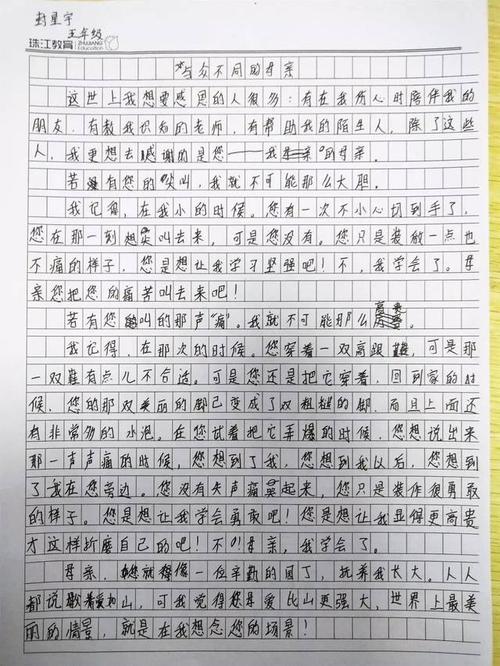 封星宇
五年级
珠江教育 ZHUJIANG Education
与众不同的母亲
这世上我想要感恩的人很多:有在我伤心时陪伴我的
朋友,有教我识知的老师,有帮助我的陌生人,除了这些
人,我更想去感谢的是您——我的母亲。
若没有您的尖叫,我就不可能那么大胆。
我记得,在我小的时候。您有一次不小心切到手了,
您在那一刻想尖叫去来,可是您没有。您只是装做一点也
不痛的样子,您是想让我学习坚强吧!不,我学会了。母
亲您把您的痛苦叫去来吧!
若有您叫的那声“痛”。我就不可能那么高贵。
我记得,在那次的时候。您穿着一双高跟鞋,可是那
一双鞋有点儿不合适。可是您还是把它穿着,回到家的时
候,您的那双美丽的脚已变成了双粗糙的脚,而且上面还
有非常多的水泡。在您试着把它弄爆的时候,您想说出来
那一声声痛的时候,您想到了我,您想到我以后,您想到
了我在您旁边。您没有失声痛哭起来,您只是装作很勇敢
的样子。您是想让我学会勇敢吧!您是想让我显得更高贵
才这样折磨自己的吧!不!母亲,我学会了。
母亲,您就得像一位辛勤的园丁,抚养我长大。人人
都说歌着爱如山,可我觉得您是爱比山更强大,世界上最美
丽的情景,就是在我想念您的场景!